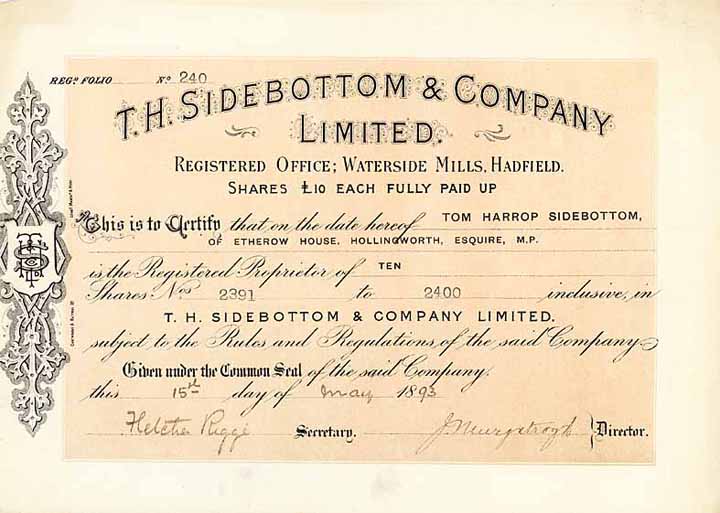 REGD. FOLIO No. 240
T. H. SIDEBOTTOM & COMPANY
LIMITED.
REGISTERED OFFICE; WATERSIDE MILLS, HADFIELD.
SHARES £10 EACH FULLY PAID UP
This is to Certify that on the date hereof TOM HARROP SIDEBOTTOM,
OF ETHEROW HOUSE, HOLLINGWORTH, ESQUIRE, M.P.
is the Registered Proprietor of TEN
Shares Nos. 2391 to 2400 inclusive, in
T. H. SIDEBOTTOM & COMPANY LIMITED.
subject to the Rules and Regulations of the said Company.
Given under the Common Seal of the said Company.
this 15th day of May 1893
Fletcher Secretary. Director.